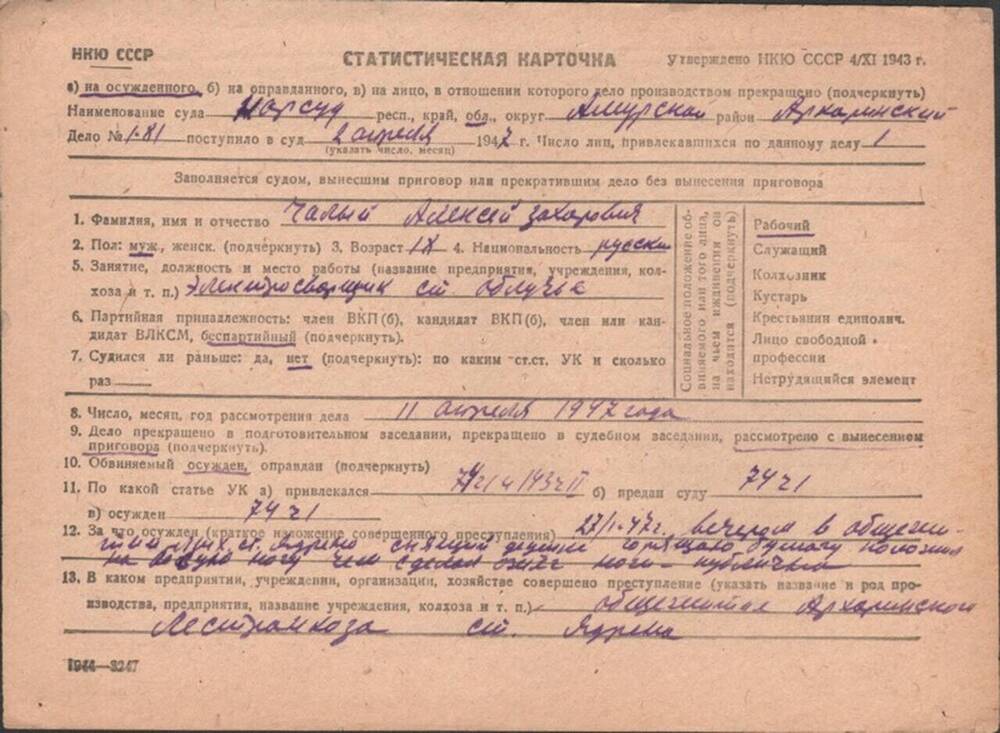 НКЮ СССР СТАТИСТИЧЕСКАЯ КАРТОЧКА Утверждено НКЮ СССР 4/XI 1943 г.
а) на осужденного, б) на оправданного, в) на лицо, в отношении которого дело производством прекращено (подчеркнуть)
Наименование суда Нарсуд респ., край, обл., округ Амурской район Архаринский
Дело № 1-81 поступило в суд 2 апреля 1947 г. Число лиц, привлекавшихся по данному делу 1
(указать число, месяц)
Заполняется судом, вынесшим приговор или прекратившим дело без вынесения приговора
1. Фамилия, имя и отчество Чалый Алексей Захарович
2. Пол: муж., женск. (подчеркнуть) 3. Возраст 4. Национальность русский
5. Занятие, должность и место работы (название предприятия, учреждения, кол-
хоза и т. п.) Электросварщик ст. облучье
6. Партийная принадлежность: член ВКП(б), кандидат ВКП(б), член или кан-
дидат ВЛКСМ, беспартийный (подчеркнуть).
7. Судился ли раньше: да, нет (подчеркнуть): по каким ст.ст. УК и сколько
раз
Социальное положение об-
виняемого или того лица,
на чьем иждивении он
находится (подчеркнуть)
Рабочий
Служащий
Колхозник
Кустарь
Крестьянин единолич.
Лицо свободной
профессии
Нетрудящийся элемент
8. Число, месяц, год рассмотрения дела 11 апреля 1947 года
9. Дело прекращено в подготовительном заседании, прекращено в судебном заседании, рассмотрено с вынесением
приговора (подчеркнуть).
10. Обвиняемый осужден, оправдан (подчеркнуть)
11. По какой статье УК а) привлекался 74 ч1 и 143 ч II б) предан суду 74 ч1
в) осужден 74 ч1
12. За что осужден (краткое изложение совершенного преступления) 27/I-47г. вечером в общежи-
ст. Ядрено спящей горящую бумагу положил
на ногу чем сделал ожег ноги - публично
13. В каком предприятии, учреждении, организации, хозяйстве совершено преступление (указать название и род про-
изводства, предприятия, название учреждения, колхоза и т. п.) общежитие Архаринского
Лестранхоза ст. Ядрена
1944—3247